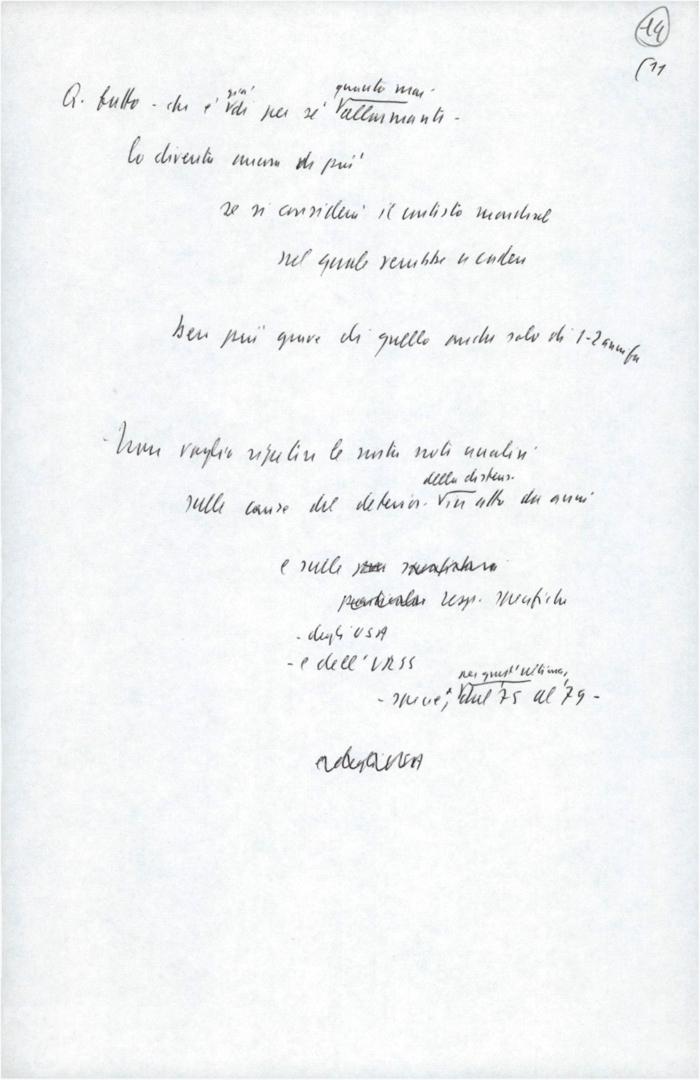 14
(11
già quanto mai
Q. tutto - che è di per sé allarmante -
lo diventa ancora di più
se si considera il contesto mondiale
nel quale verrebbe a cadere
ben più grave di quello anche solo di 1-2 anni fa
- Non voglio ripetere le nostre note analisi
della distens.
sulle cause del deterior. in atto da anni
e sulle
resp. specifiche
- degli USA
- e dell'URSS
per quest'ultima,
- specie, dal '75 al '79 -
e degli USA